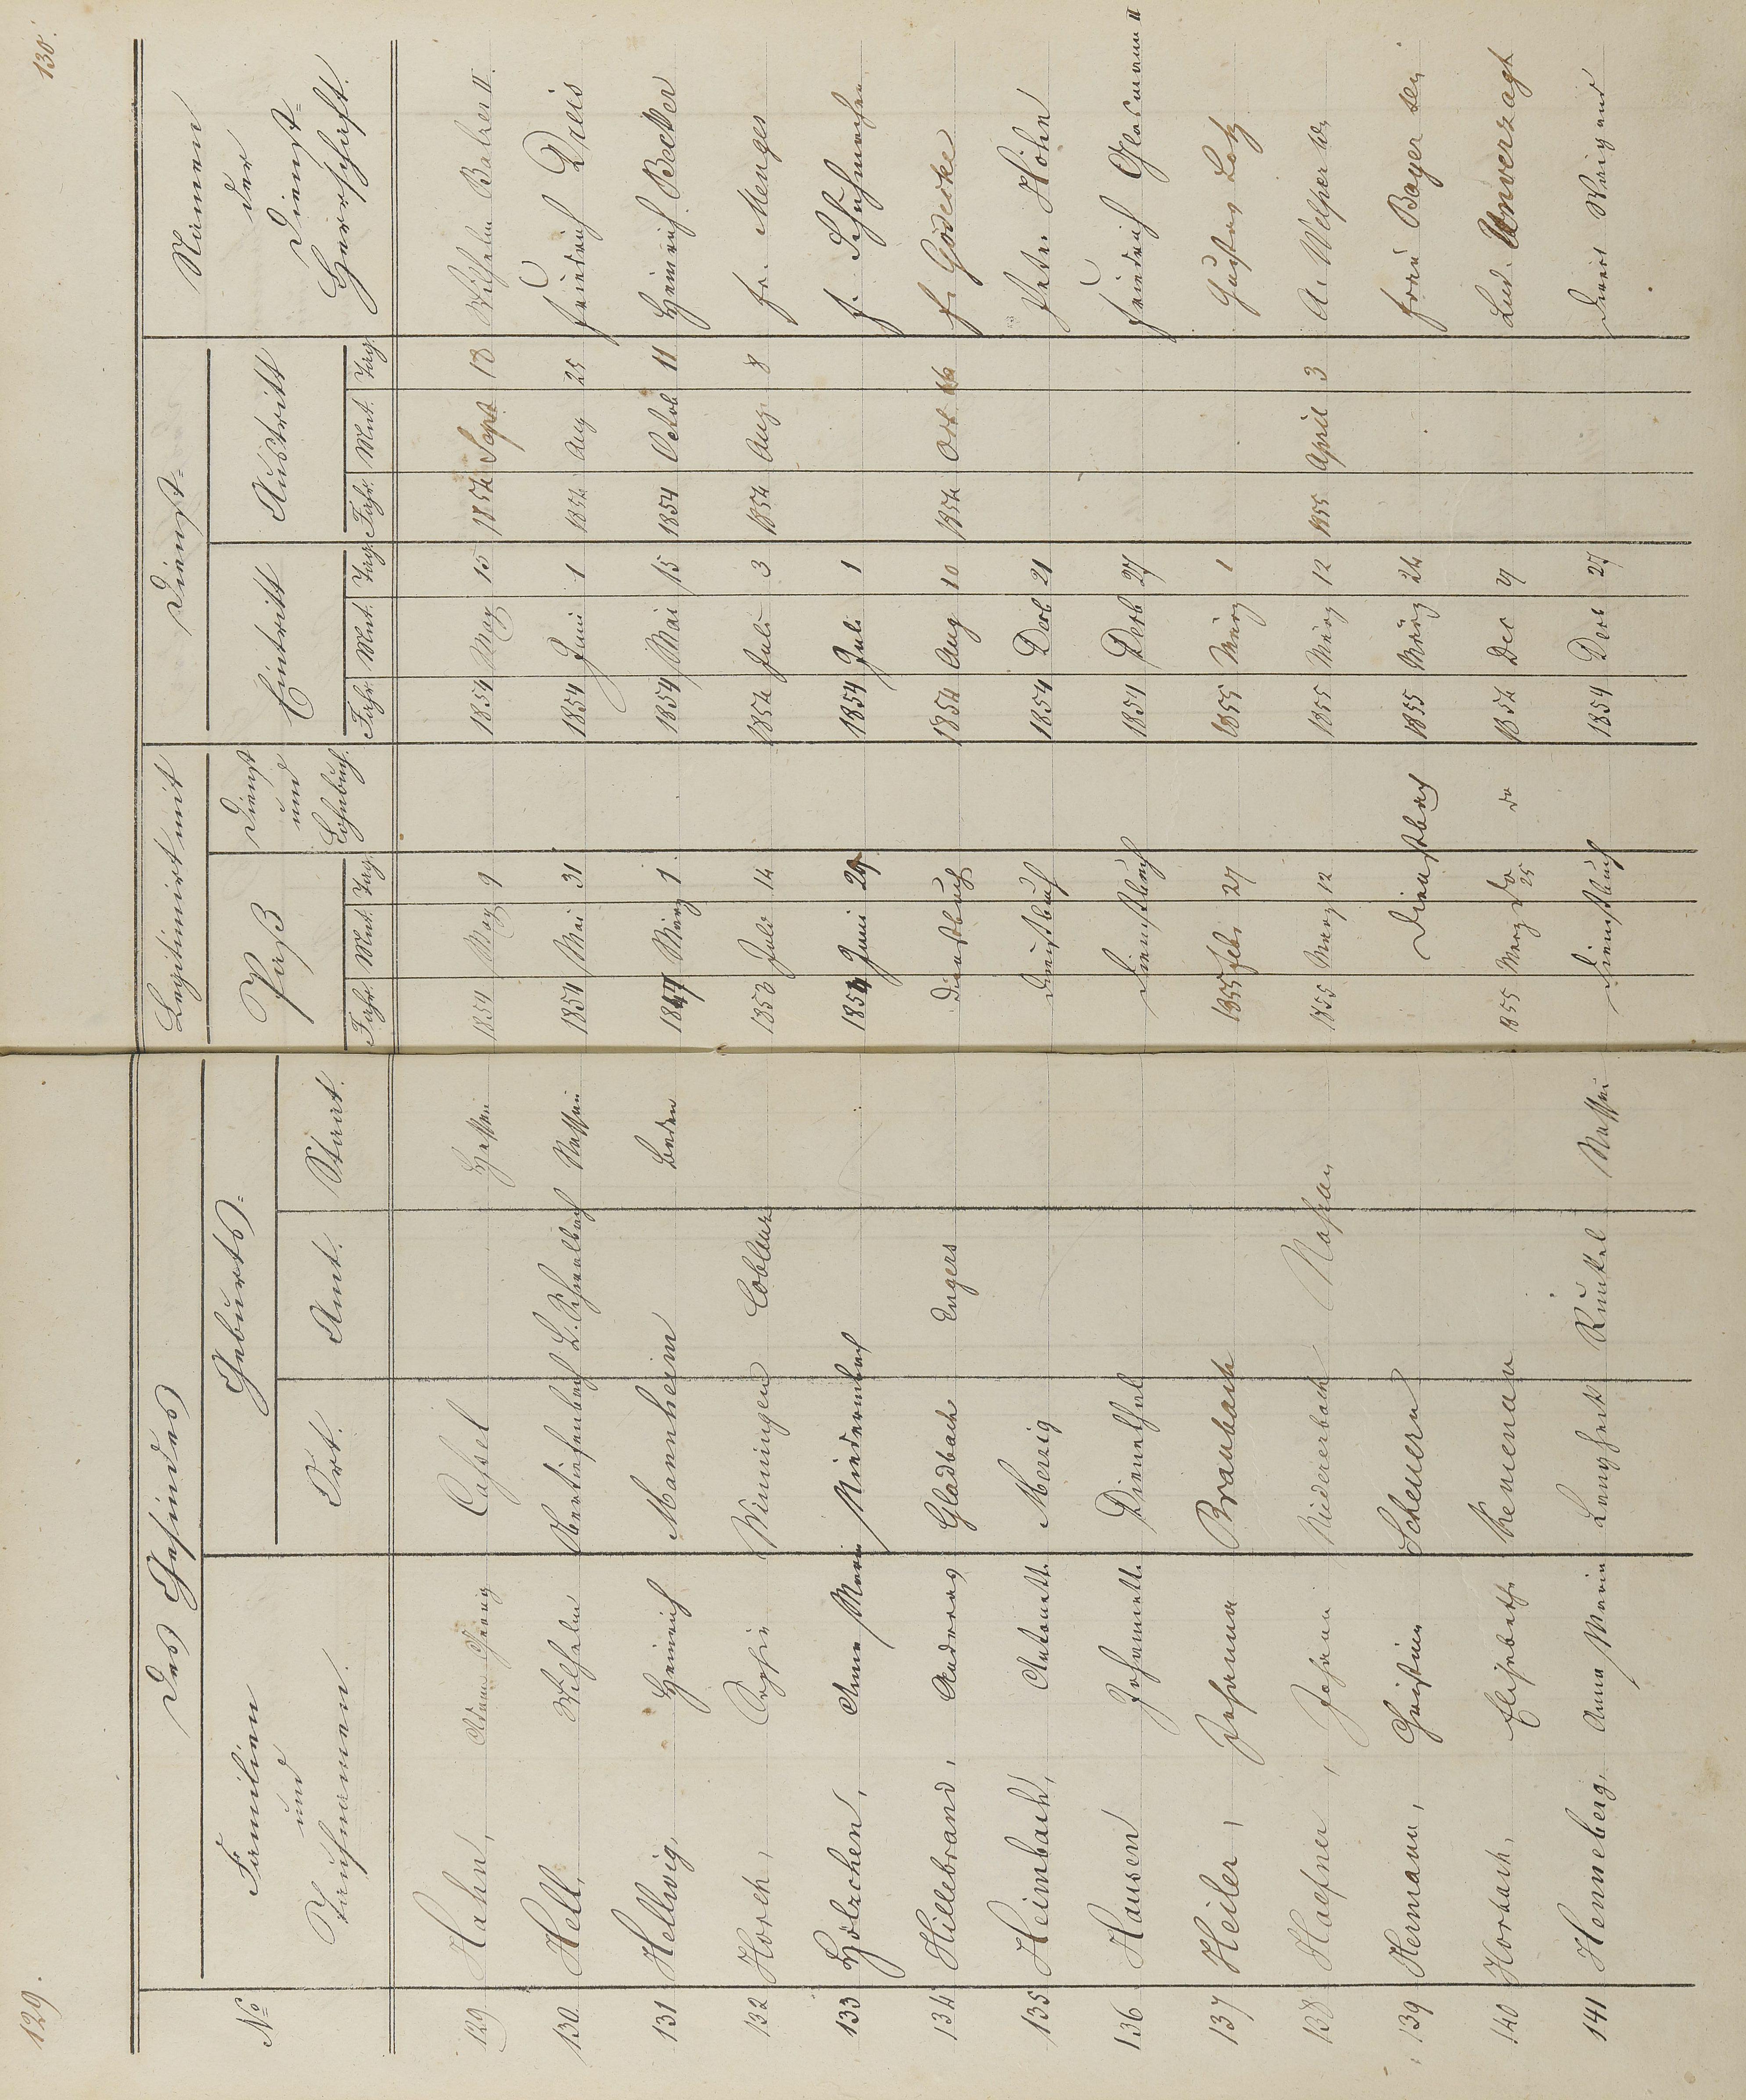 129.
130.
No
Des Gesindes
Legitimirt mit
Dienst-
Namen der Dienst-Herrschaft.
Familien und Taufnamen.
Geburts-
Paß
Dienst und Lohnbuch.
Eintritt
Austritt
Ort. Amt. Staat.
Jahr. Mnt. Tag. Jahr. Mnt. Tag. Jahr. Mnt. Tag.
129 Hahn, Adam Georg Cassel Hessen 1854 May 9 1854 May 15 1854 Sept 18 Wilhelm Balzer II.
130 Hell, Wilhelm Obertiefenbach L. Schwalbach Nassau 1854 Mai 31 1854 Juni 1 1854 Aug 25 Friedrich Dreis
131 Hellwig, Heinrich Mannheim Baden 1847 März 1. 1854 Mai 15 1854 Octob 11 Heinrich Becker
132 Horch, Sophie Winningen Coblenz 1853 Juli 14 1854 Juli 3 1854 Aug. 8 Fr. Menges
133 Hölzchen, Anna Maria Niedermbach 1854 Juni 29 1854 Juli 1 F. Schuhmacher
134 Hillebrand, Andreas Gladbach Engers Dienstbuch 1854 Aug 10 1854 Oct 16 F. Gödecke
135 Heimbach, Antonette Merzig Dienstbuch 1854 Decb 21 Peter Höhn
136 Hausen Johannette Dienethal Dienstbuch 1854 Decb 27 Friedrich Glasmann II
137 Heiler, Johanna Braubach 1855 Feb. 27 1855 März 1 Gustav Lotz
138 Haefner, Johann Niedererbach Nassau 1855 Merz 12 1855 März 12 1855 April 3 A. Welper
139 Hermann, Christine Scheuern Dienstbuch 1855 März 24 Frau Boyer
140 Horbach, Elisabeth Kemenau 1855 Merz 25 do do 1854 Dec 4 Lud. Unverzagt
141 Henneberg, Anna Maria Langheck Runkel Nassau Dienstbuch 1854 Decb 27